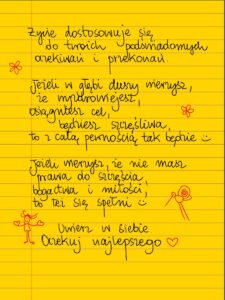 Życie dostosowuje się
do twoich podświadomych
oczekiwań i przekonań
Jeżeli w głębi duszy wierzysz,
że wyzdrowiejesz,
osiągniesz cel,
będziesz szczęśliwa,
to z całą pewnością tak będzie
Jeżeli wierzysz, że nie masz
prawa do szczęścia,
bogactwa i miłości,
to też się spełni
Uwierz w siebie
Oczekuj najlepszego